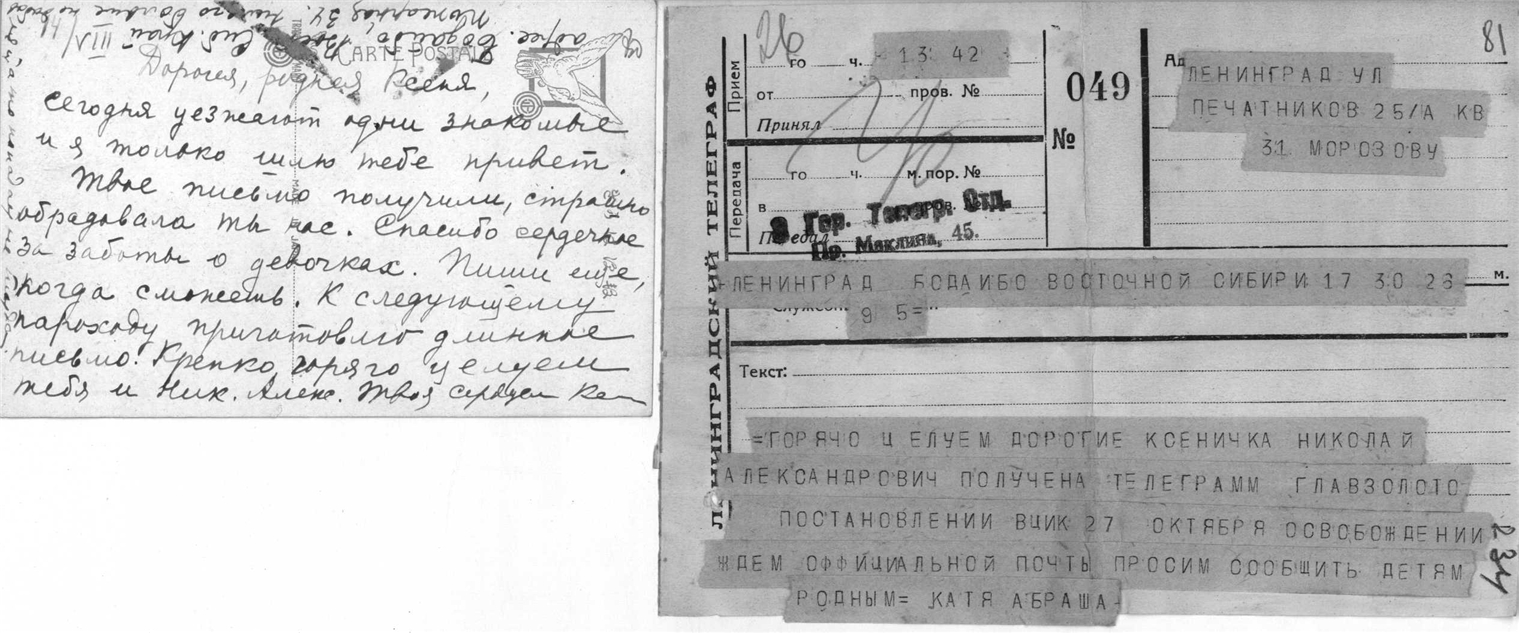 адрес. Бодайбо, Вост. Сиб. Край
Пожарная 34.
CARTE POSTALE
Дорогая, родная Ксеня,
Сегодня уезжают одни знакомые
и я только шлю тебе привет.
Твое письмо получили, страшно
обрадовала ты нас. Спасибо сердечное
за заботы о девочках. Пиши еще,
когда сможешь. К следующему
пароходу приготовлю длинное
письмо. Крепко, горячо целуем
тебя и Ник. Алекс. Твоя сердцем
ЛЕНИНГРАДСКИЙ ТЕЛЕГРАФ
Прием
26
го ч. 13 42
от пров. №
Принял
Передача
го ч. м. пор. №
в пров. №
Передал
9 Гор. Телегр. Отд.
Пр. Маклина, 45.
049
№
81
Ад
ЛЕНИНГРАД УЛ
ПЕЧАТНИКОВ 25/А КВ
31 МОРОЗОВУ
ЛЕНИНГРАД БОДАИБО ВОСТОЧНОЙ СИБИРИ 17 30 26 м.
Служебн.
9 5=
Текст:
=ГОРЯЧО ЦЕЛУЕМ ДОРОГИЕ КСЕНИЧКА НИКОЛАЙ
АЛЕКСАНДРОВИЧ ПОЛУЧЕНА ТЕЛЕГРАММ ГЛАВЗОЛОТО
ПОСТАНОВЛЕНИИ ВЦИК 27 ОКТЯБРЯ ОСВОБОЖДЕНИИ
ЖДЕМ ОФФИЦИАЛЬНОЙ ПОЧТЫ ПРОСИМ СООБЩИТЬ ДЕТЯМ
РОДНЫМ= КАТЯ АБРАША
234